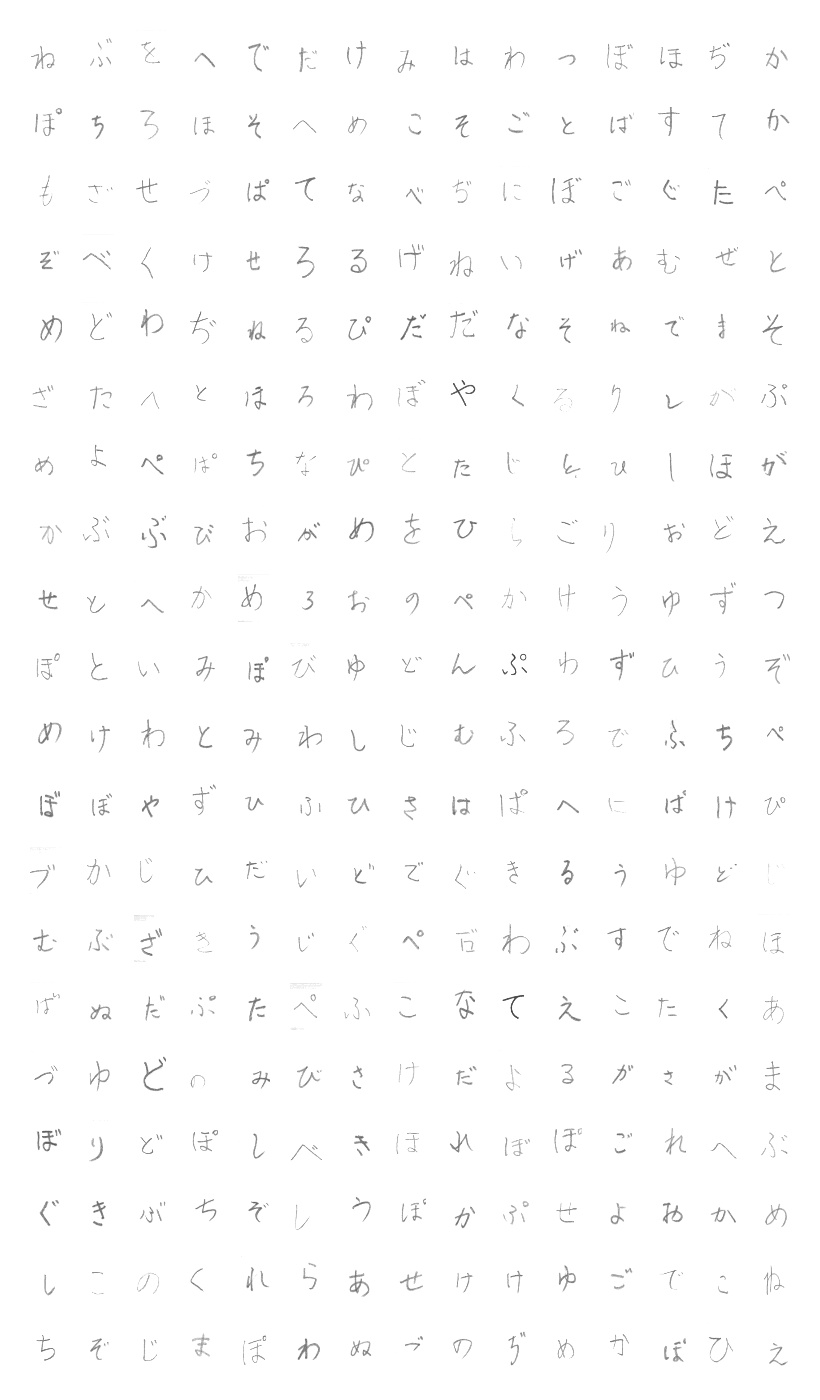 ねぶをへでだけみはわっぼほぢか
ぽちろほそへめこそごとばすてか
もざせづぱてなべぢにぼごぐたぺ
ぞべくけせろるげねいげあむぜと
めどわぢねるぴだだなそねでまそ
ざたへとほろわぼやくるりしがぷ
めよぺぱちなぴとたじとひしほが
かぶぶびおがめをひらごりおどえ
せとへかめろおのぺかけうゆずつ
ぽといみぽびゆどんぷわずひうぞ
めけわとみわしじむふろでふちぺ
ぼぼやずひふひさはぱへにばけぴ
づかじひだいどでぐきるうゆどじ
むぶざきうじぐぺびわぶすでねほ
ばぬだぷたぺふこなてえこたくあ
づゆどのみびさけだよるがさがま
ぼりどぽしべきほれぼぽごれへぶ
ぐきぶちぞしうぽかぷせよおかめ
しこのくれらあせけけゆごでこね
ちぞじまぽわぬづのぢめかぽひえ